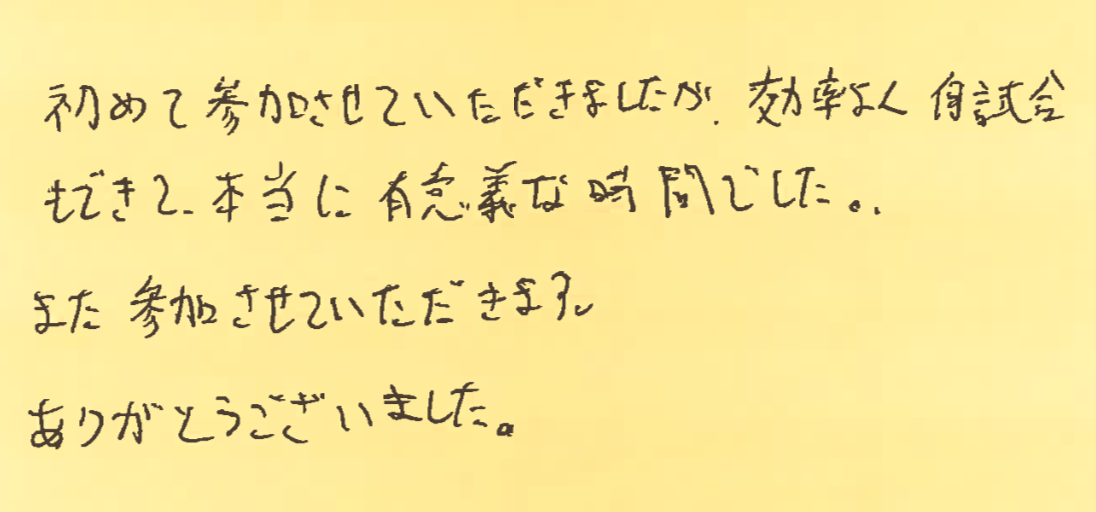 初めて参加させていただきましたが、効率よく 試合
もできて、本当に有意義な時間でした。
また参加させていただきます。
ありがとうございました。